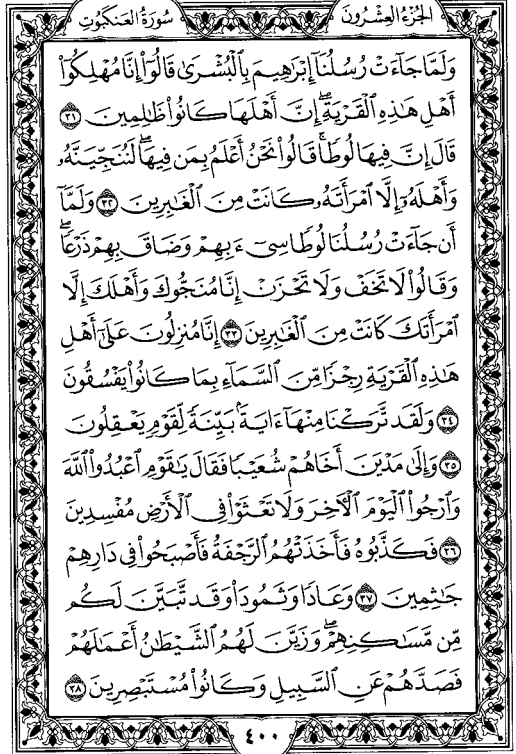 سُورَةُ العَنكَبُوتِ
الجُزْءُ العِشْرُونَ
وَلَمَّا جَآءَتْ رُسُلُنَآ إِبْرَٰهِيمَ بِٱلْبُشْرَىٰ قَالُوٓا۟ إِنَّا مُهْلِكُوٓا۟
أَهْلِ هَٰذِهِ ٱلْقَرْيَةِ ۖ إِنَّ أَهْلَهَا كَانُوا۟ ظَٰلِمِينَ ٣١
قَالَ إِنَّ فِيهَا لُوطًا ۚ قَالُوا۟ نَحْنُ أَعْلَمُ بِمَن فِيهَا ۖ لَنُنَجِّيَنَّهُۥ
وَأَهْلَهُۥٓ إِلَّا ٱمْرَأَتَهُۥ كَانَتْ مِنَ ٱلْغَٰبِرِينَ ٣٢ وَلَمَّآ
أَن جَآءَتْ رُسُلُنَا لُوطًا سِىٓءَ بِهِمْ وَضَاقَ بِهِمْ ذَرْعًا ۖ
وَقَالُوا۟ لَا تَخَفْ وَلَا تَحْزَنْ إِنَّا مُنَجُّوكَ وَأَهْلَكَ إِلَّا
ٱمْرَأَتَكَ كَانَتْ مِنَ ٱلْغَٰبِرِينَ ٣٣ إِنَّا مُنزِلُونَ عَلَىٰٓ أَهْلِ
هَٰذِهِ ٱلْقَرْيَةِ رِجْزًا مِّنَ ٱلسَّمَآءِ بِمَا كَانُوا۟ يَفْسُقُونَ
٣٤ وَلَقَد تَّرَكْنَا مِنْهَآ ءَايَةًۢ بَيِّنَةً لِّقَوْمٍ يَعْقِلُونَ
٣٥ وَإِلَىٰ مَدْيَنَ أَخَاهُمْ شُعَيْبًا فَقَالَ يَٰقَوْمِ ٱعْبُدُوا۟ ٱللَّهَ
وَٱرْجُوا۟ ٱلْيَوْمَ ٱلْءَاخِرَ وَلَا تَعْثَوْا۟ فِى ٱلْأَرْضِ مُفْسِدِينَ
٣٦ فَكَذَّبُوهُ فَأَخَذَتْهُمُ ٱلرَّجْفَةُ فَأَصْبَحُوا۟ فِى دَارِهِمْ
جَٰثِمِينَ ٣٧ وَعَادًا وَثَمُودَا۟ وَقَد تَّبَيَّنَ لَكُم
مِّن مَّسَٰكِنِهِمْ ۖ وَزَيَّنَ لَهُمُ ٱلشَّيْطَٰنُ أَعْمَٰلَهُمْ
فَصَدَّهُمْ عَنِ ٱلسَّبِيلِ وَكَانُوا۟ مُسْتَبْصِرِينَ ٣٨
٤٠٠